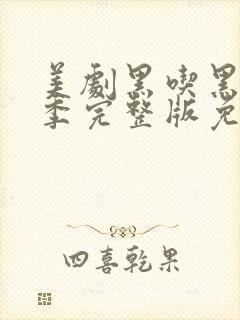 美劇黑喫黑
季完整版免
四喜乾果